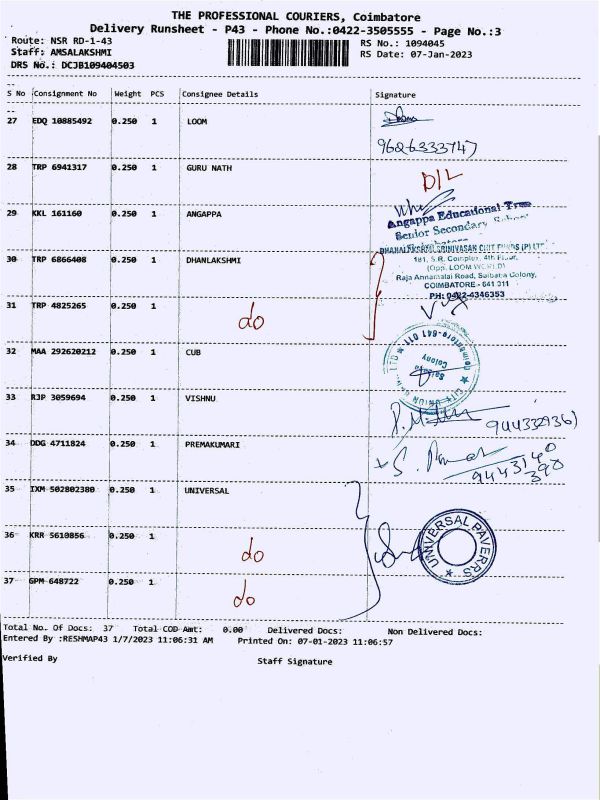 THE PROFESSIONAL COURIERS, Coimbatore
Delivery Runsheet - P43 - Phone No.:0422-3505555 - Page No.:3
Route: NSR RD-1-43
Staff: AMSALAKSHMI
DRS No.: DCJB109404503
RS No.: 1094045
RS Date: 07-Jan-2023
S No Consignment No Weight PCS Consignee Details Signature
27 EDQ 10885492 0.250 1 LOOM
9626333747
28 TRP 6941317 0.250 1 GURU NATH
D/L
29 KKL 161160 0.250 1 ANGAPPA
Angappa Educational Trust
Senior Secondary School
30 TRP 6866408 0.250 1 DHANLAKSHMI
DHANALAKSHMI SRINIVASAN CHIT FUNDS (P) LTD
181, S.R. Complex, 4th Floor,
(Opp. LOOM WORLD)
Raja Annamalai Road, Saibaba Colony,
COIMBATORE - 641 011
PH: 0422-4346353
31 TRP 4825265 0.250 1 do
32 MAA 292620212 0.250 1 CUB
CITY UNION BANK LTD
Coimbatore-641 011
Saibaba
Colony
33 RJP 3059694 0.250 1 VISHNU
9443329361
34 DDG 4711824 0.250 1 PREMAKUMARI
9443140
390
35 IXM 502802380 0.250 1 UNIVERSAL
UNIVERSAL PAVERRS
36 KRR 5610856 0.250 1 do
37 GPM 648722 0.250 1 do
Total No. Of Docs: 37 Total COD Amt: 0.00 Delivered Docs: Non Delivered Docs:
Entered By :RESHMAP43 1/7/2023 11:06:31 AM Printed On: 07-01-2023 11:06:57
Verified By Staff Signature